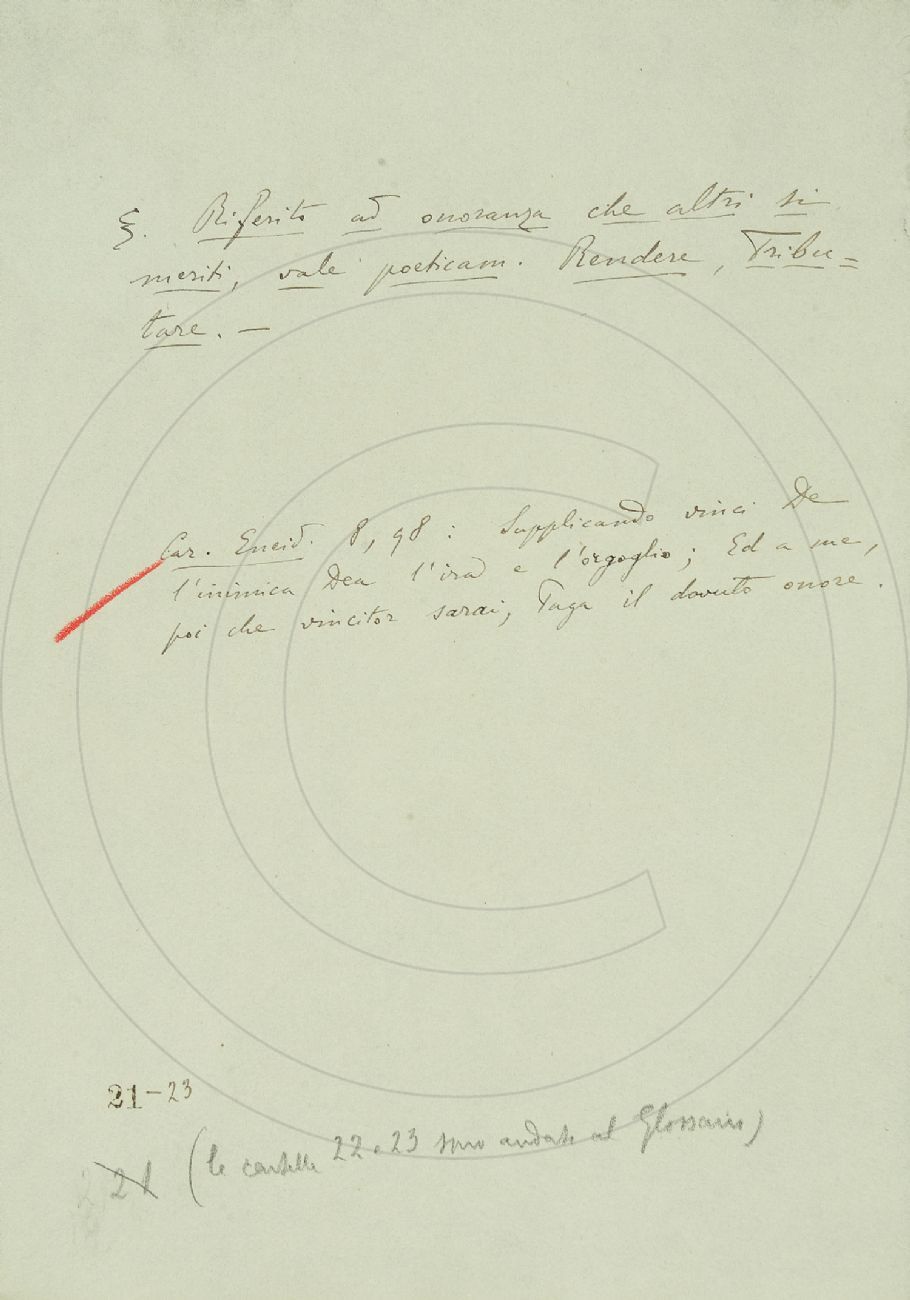 §. Riferito ad onoranza che altri si
meriti, vale poeticam. Rendere, Tribu=
tare. —
Car. Eneid. 8, 98: Supplicando vinci De
l'inimica Dea l'ira e l'orgoglio; Ed a me,
poi che vincitor sarai, Paga il dovuto onore.
21-23
21 (le cartelle 22 e 23 sono andate al Glossario)